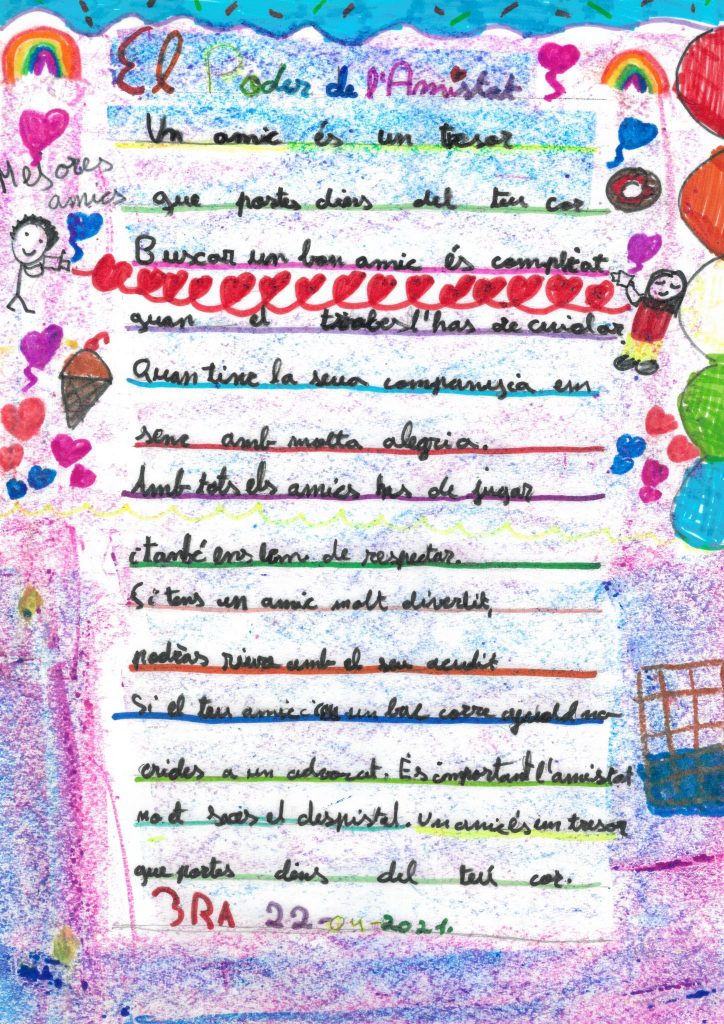 El Poder de l'Amistat
Un amic és un tresor
Mesores
amics
que portes dins del teu cor
Buscar un bon amic és complicat
quan el trobes l'has de cuidar
Quan tinc la seua companyia em
senc amb molta alegria.
Amb tots els amics hes de jugar
i també ens hem de respectar.
Si tens un amic molt divertit,
podràs riure amb el seu acudit
Si el teu amic un bac corre ajudal no
crides a un advocat. És important l'amistat
no et saies el despistat. Un amic és un tresor
que portes dins del teu cor.
3RA 22-04-2021.